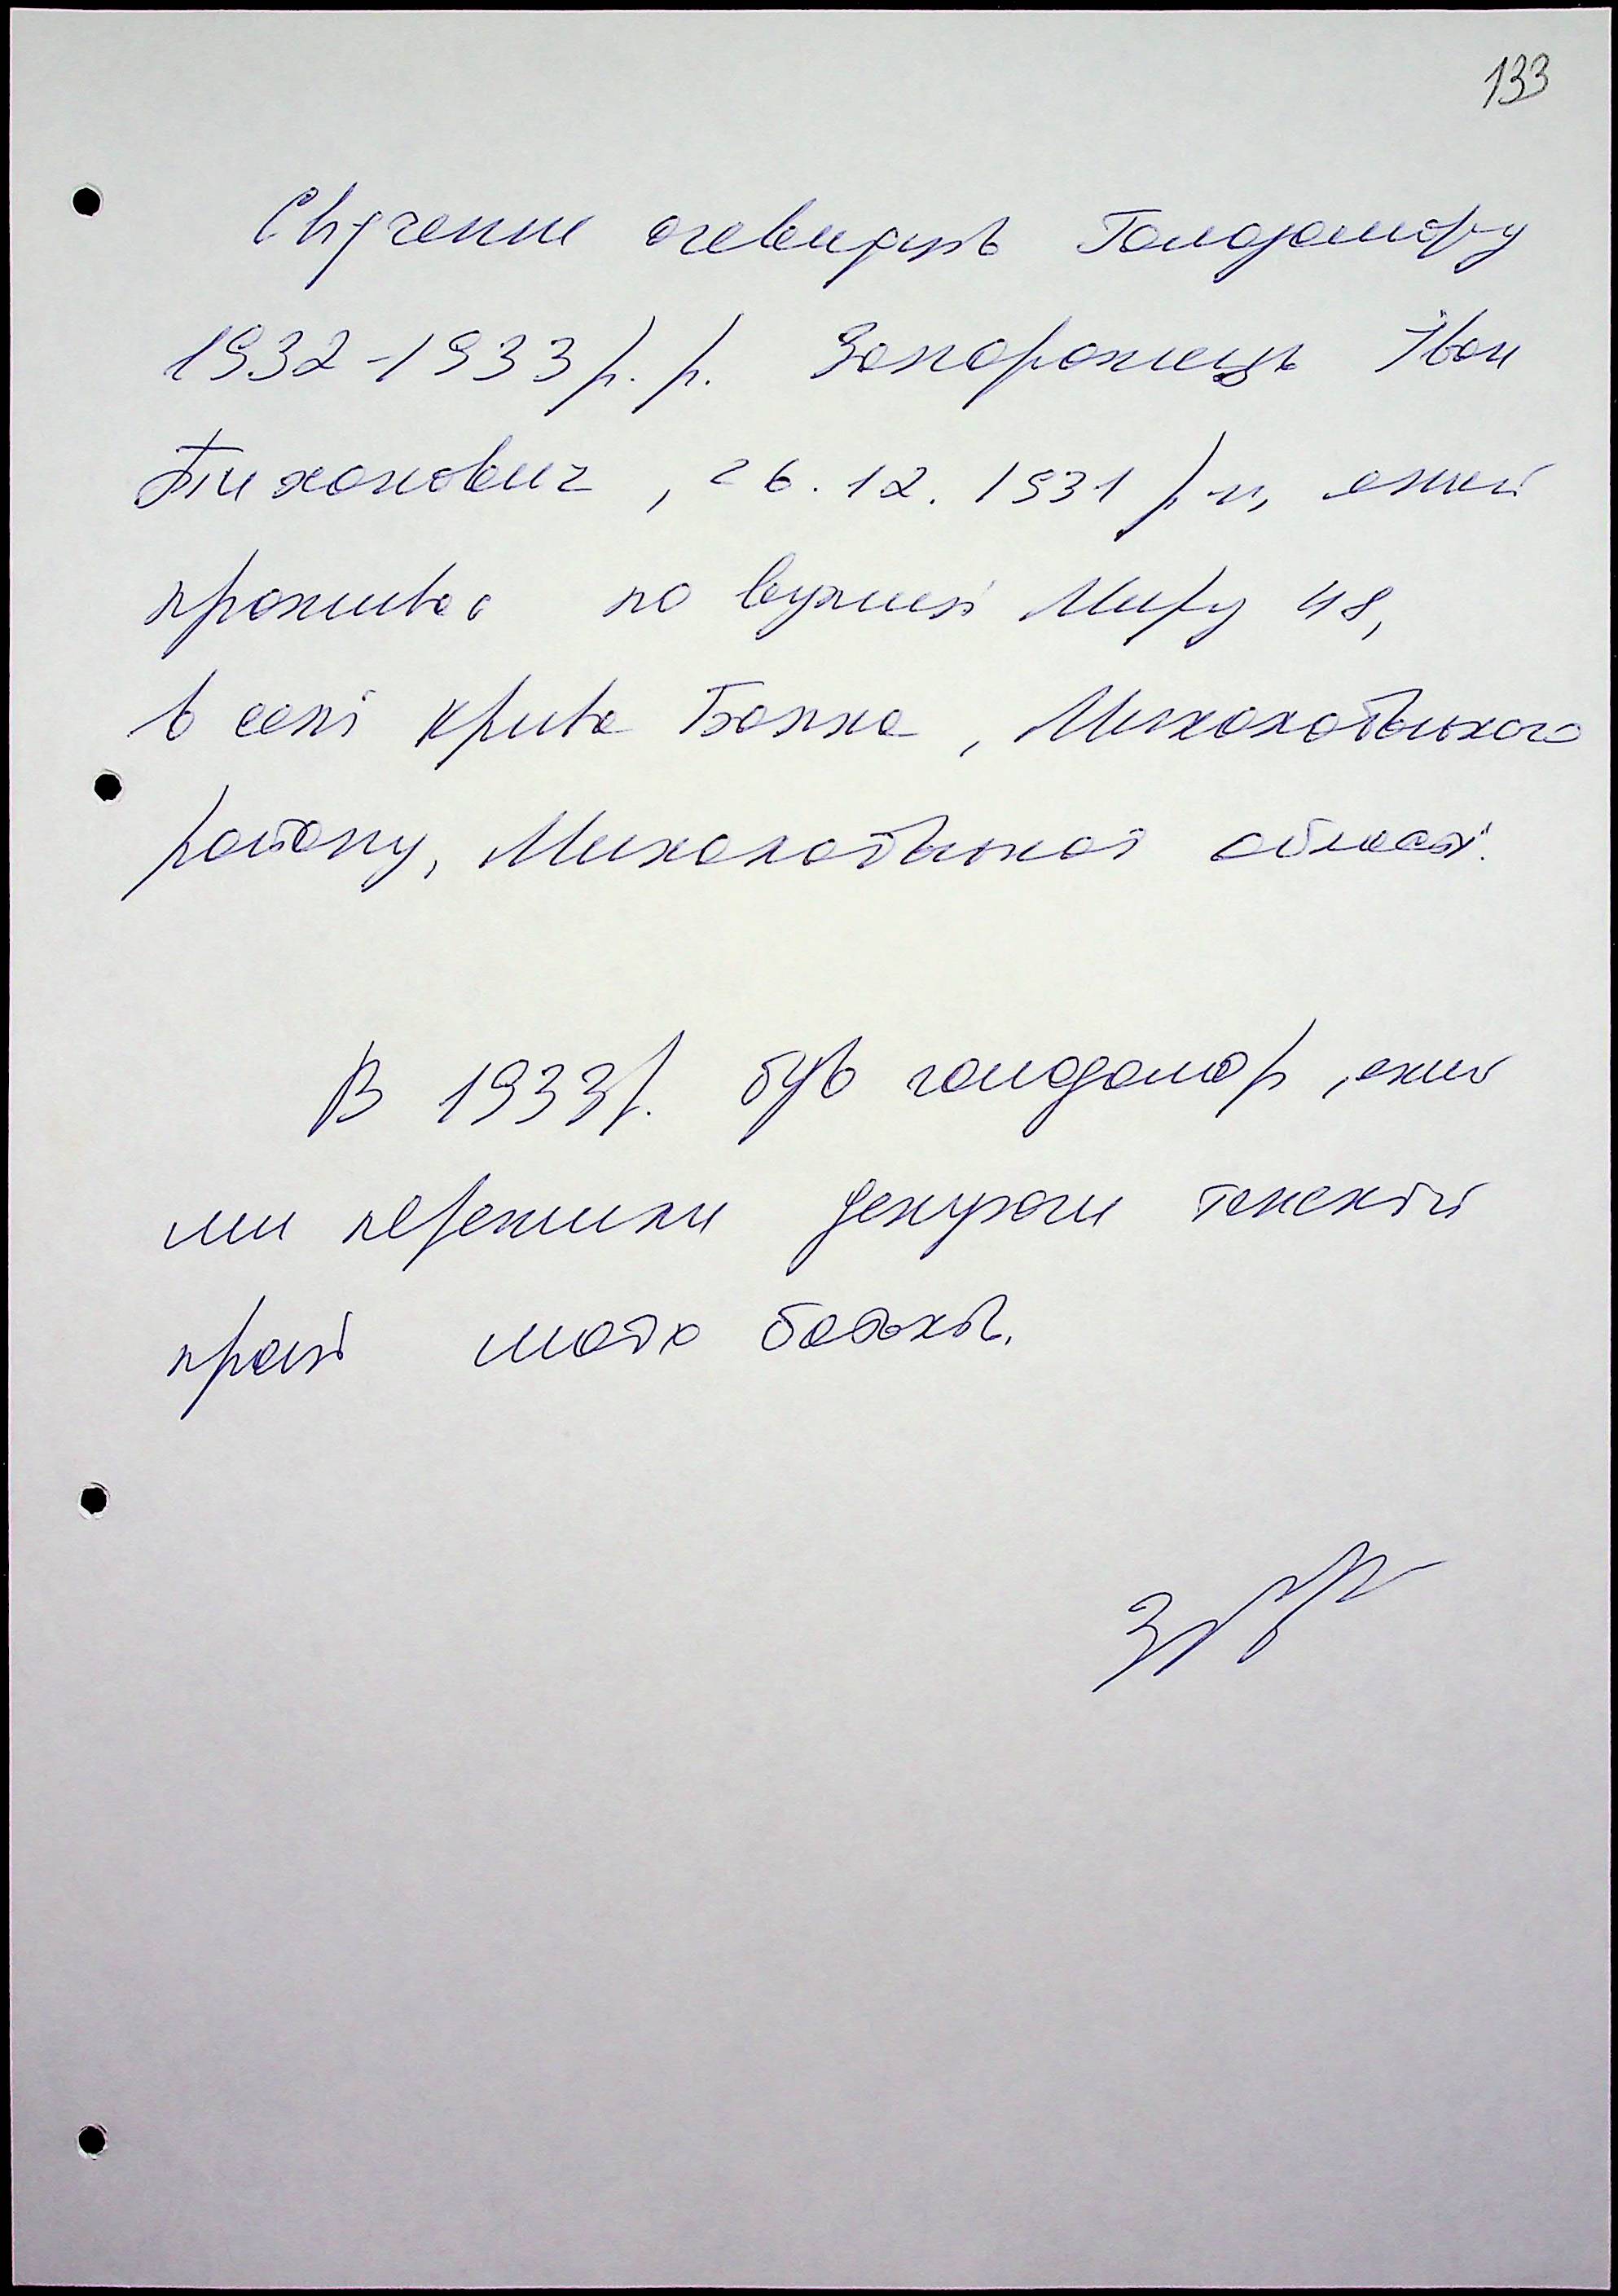 133
Свідчення очевидців Голодомору
1932-1933 р.р. Запорожець Іван
Тихонович, 26.12.1931 р.н, який
проживає по вулиці Миру 48,
в селі Крива Балка, Миколаївського
району, Миколаївської області.
В 1933р. був голодомор, який
ми пережили дякуючи тяжкій
праці моїх батьків.